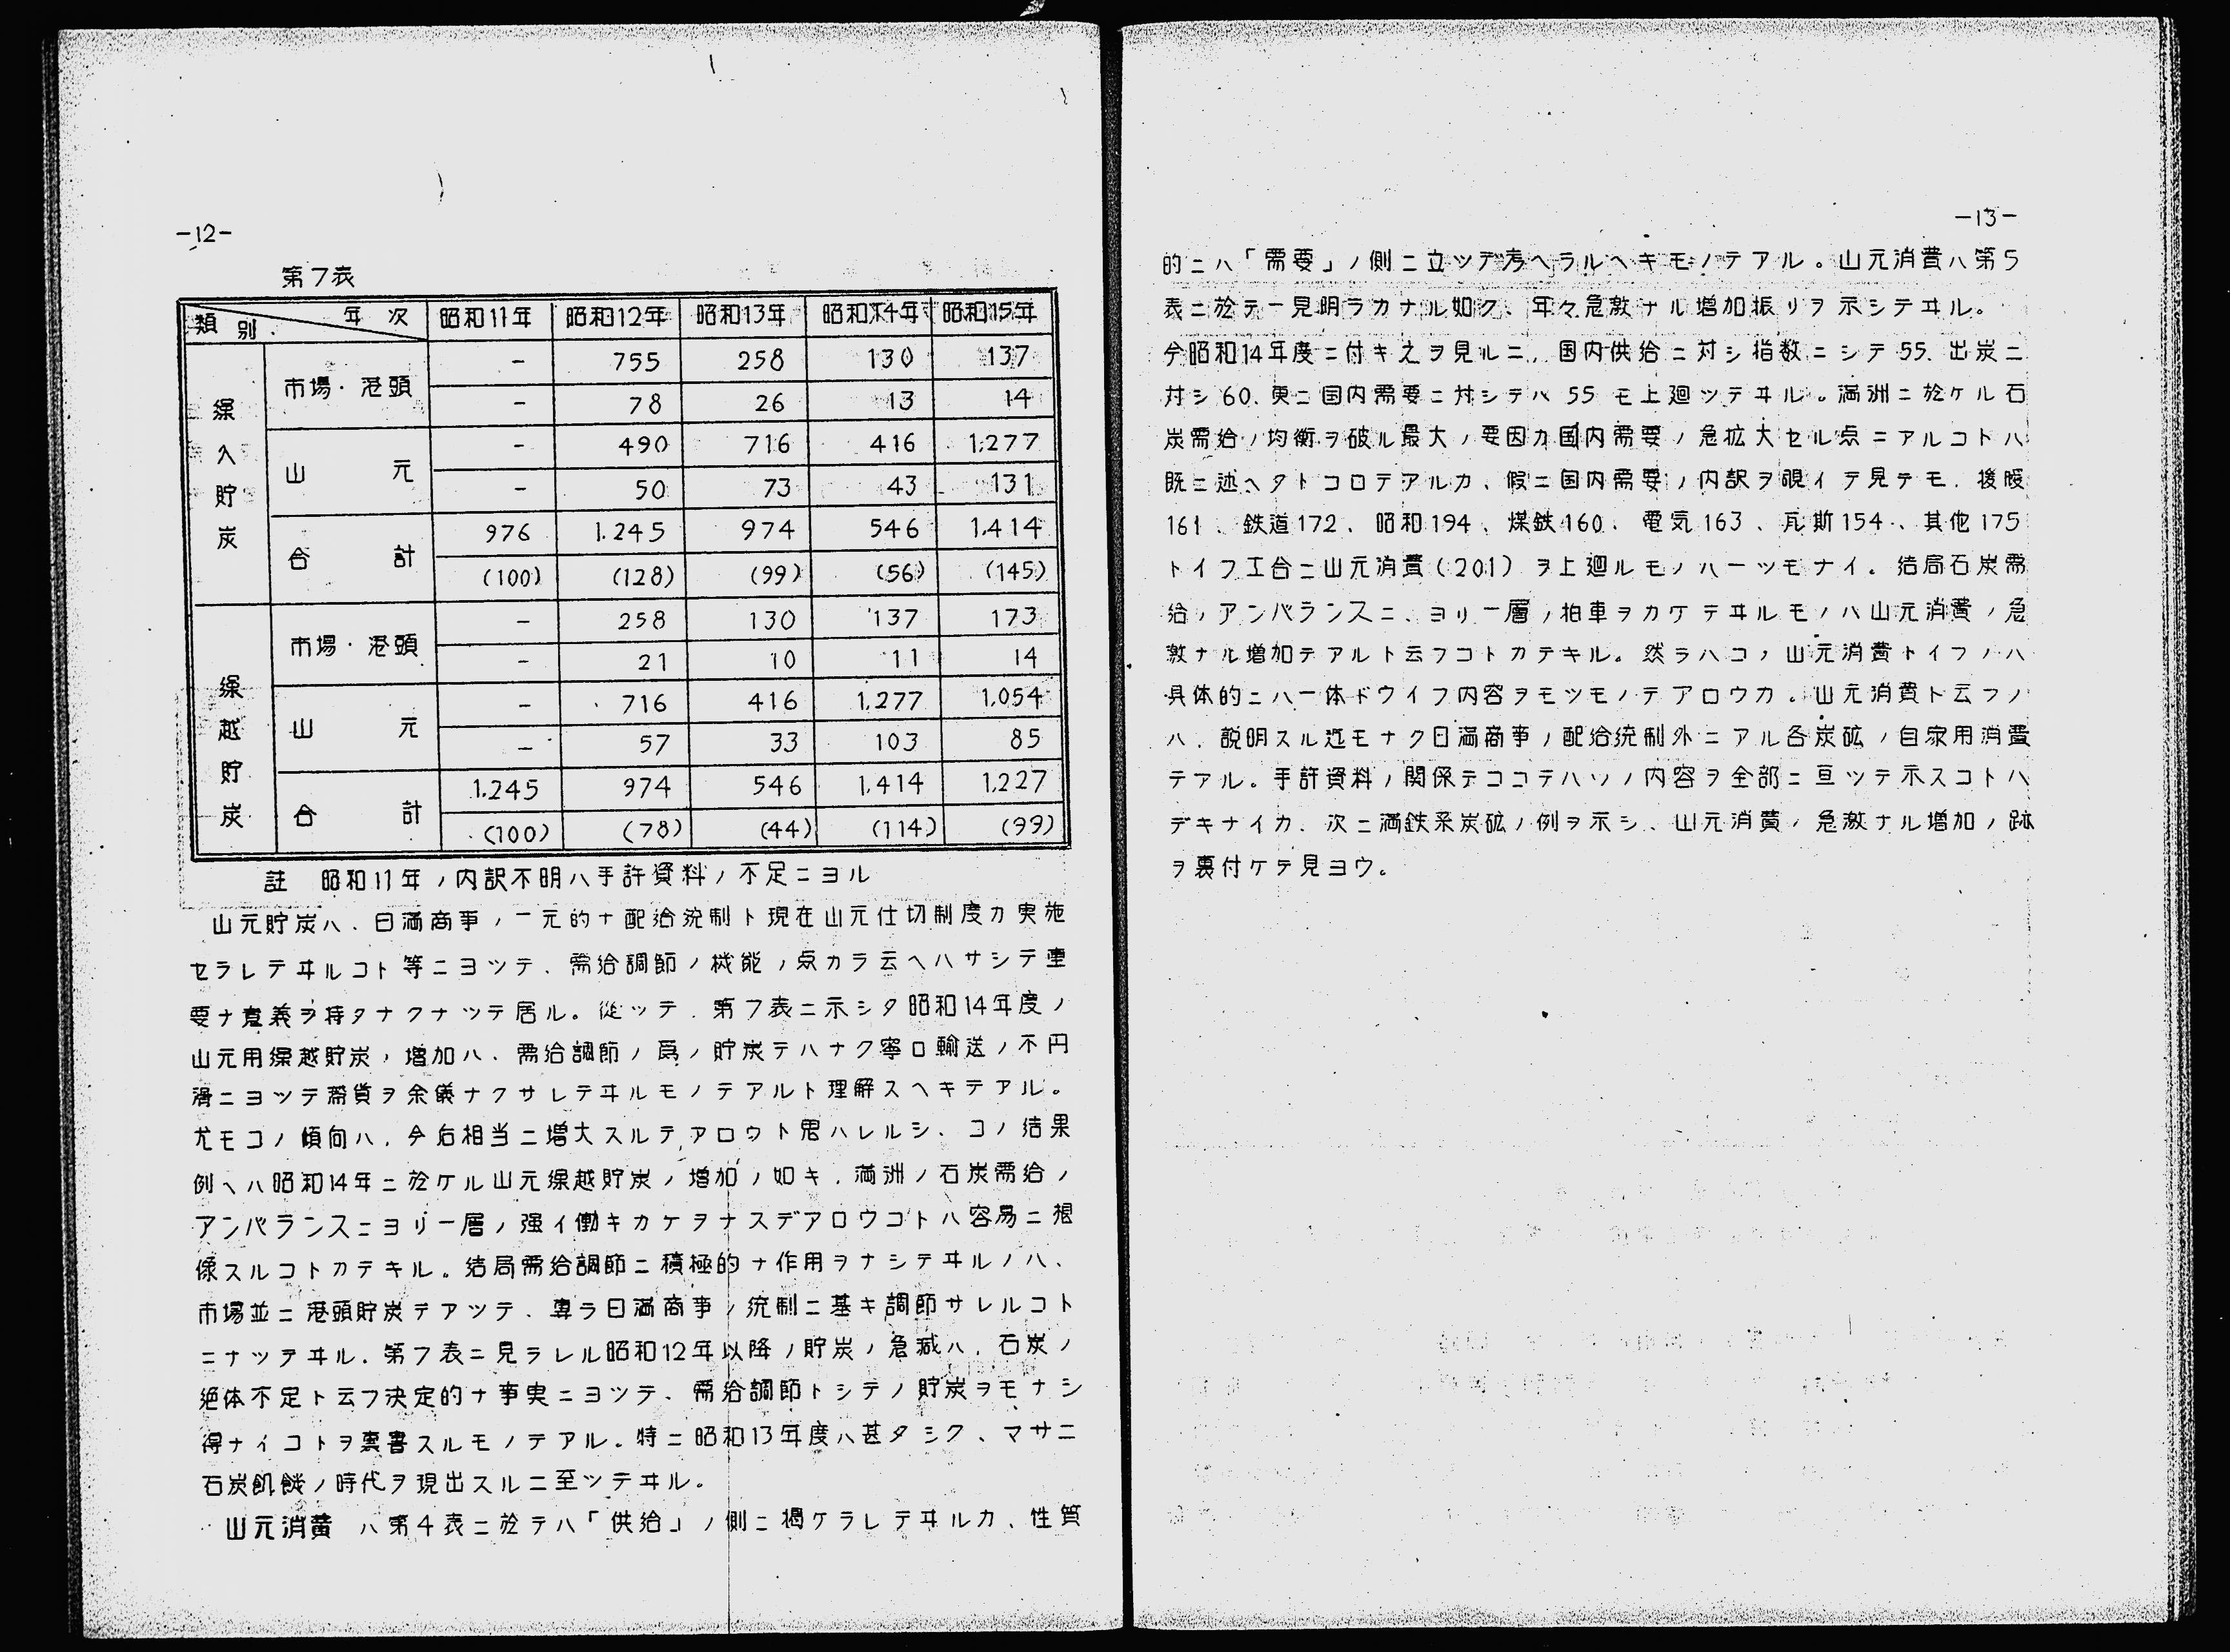 -12-
第7表
類別 年次 昭和11年 昭和12年 昭和13年 昭和14年 昭和15年
繰入貯炭
市場・港頭 - 755 258 130 137
- 78 26 13 14
山元 - 490 716 416 1,277
- 50 73 43 131
合計 976 1.245 974 546 1,414
(100) (128) (99) (56) (145)
繰越貯炭
市場・港頭 - 258 130 137 173
- 21 10 11 14
山元 - 716 416 1,277 1,054
- 57 33 103 85
合計 1.245 974 546 1,414 1,227
(100) (78) (44) (114) (99)
註 昭和11年ノ内訳不明ハ手許資料ノ不足ニヨル
山元貯炭ハ、日満商事ノ一元的ナ配給統制ト現在山元仕切制度カ実施
セラレテヰルコト等ニヨツテ、需給調節ノ機能ノ点カラ云ヘハサシテ重
要ナ意義ヲ持タナクナツテ居ル。従ツテ、第7表ニ示シタ昭和14年度ノ
山元用繰越貯炭ノ増加ハ、需給調節ノ為ノ貯炭テハナク寧ロ輸送ノ不円
滑ニヨツテ滞貨ヲ余儀ナクサレテヰルモノテアルト理解スヘキテアル。
尤モコノ傾向ハ、今后相当ニ増大スルテアロウト思ハレルシ、コノ結果
例ヘハ昭和14年ニ於ケル山元繰越貯炭ノ増加ノ如キ、満洲ノ石炭需給ノ
アンバランスニヨリ一層ノ強イ働キカケヲナスデアロウコトハ容易ニ想
像スルコトカテキル。結局需給調節ニ積極的ナ作用ヲナシテヰルノハ、
市場並ニ港頭貯炭テアツテ、専ラ日満商事ノ統制ニ基キ調節サレルコト
ニナツテヰル。第7表ニ見ラレル昭和12年以降ノ貯炭ノ急減ハ、石炭ノ
絶体不足ト云フ決定的ナ事実ニヨツテ、需給調節トシテノ貯炭ヲモナシ
得ナイコトヲ裏書スルモノテアル。特ニ昭和13年度ハ甚タシク、マサニ
石炭飢饉ノ時代ヲ現出スルニ至ツテヰル。
山元消費 ハ第4表ニ於テハ「供給」ノ側ニ掲ケラレテヰルカ、性質
-13-
的ニハ「需要」ノ側ニ立ツテ考ヘラルヘキモノテアル。山元消費ハ第5
表ニ於テ一見明ラカナル如ク、年々急激ナル増加振リヲ示シテヰル。
今昭和14年度ニ付キ之ヲ見ルニ、国内供給ニ対シ指数ニシテ55、出炭ニ
対シ60、更ニ国内需要ニ対シテハ55モ上廻ツテヰル。満洲ニ於ケル石
炭需給ノ均衡ヲ破ル最大ノ要因カ国内需要ノ急拡大セル点ニアルコトハ
既ニ述ヘタトコロテアルカ、假ニ国内需要ノ内訳ヲ覗イテ見テモ、後暖
161、鉄道172、昭和194、煤鉄160、電気163、瓦斯154、其他175
トイフ工合ニ山元消費(201)ヲ上廻ルモノハ一ツモナイ。結局石炭需
給ノアンバランスニ、ヨリ一層ノ拍車ヲカケテヰルモノハ山元消費ノ急
激ナル増加テアルト云フコトカテキル。然ラハコノ山元消費トイフノハ
具体的ニハ一体ドウイフ内容ヲモツモノテアロウカ。山元消費ト云フノ
ハ、説明スル迄モナク日満商事ノ配給統制外ニアル各炭砿ノ自家用消費
テアル。手許資料ノ関係テココテハソノ内容ヲ全部ニ亘ツテ示スコトハ
デキナイカ、次ニ満鉄系炭砿ノ例ヲ示シ、山元消費ノ急激ナル増加ノ跡
ヲ裏付ケテ見ヨウ。